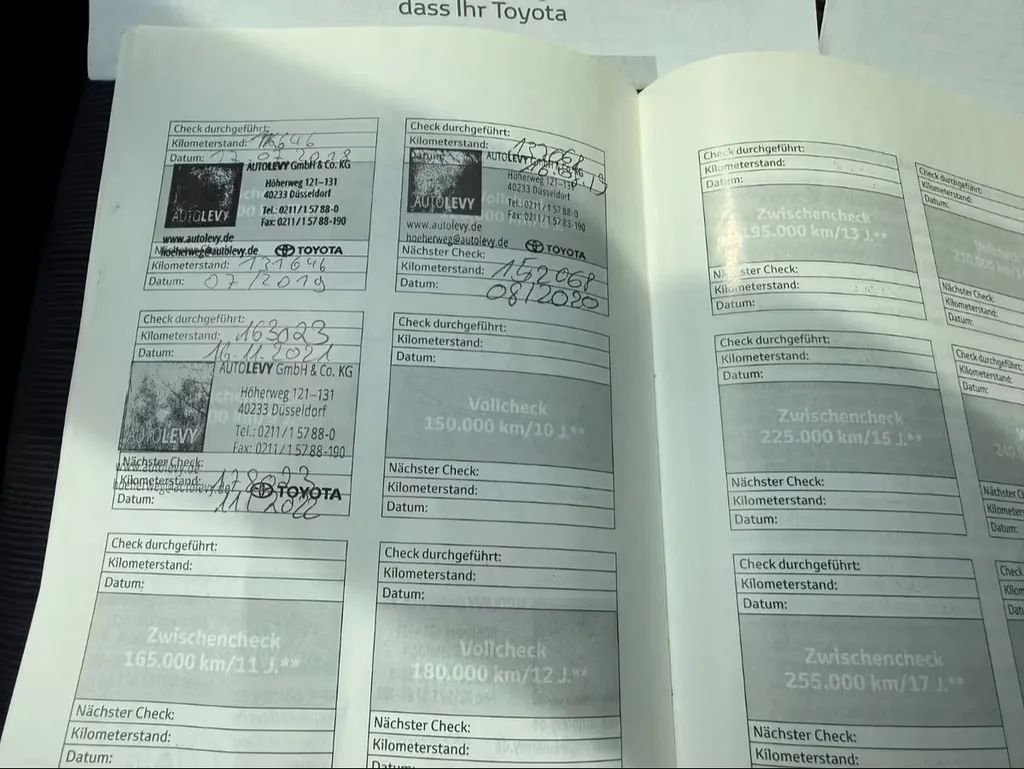 dass Ihr Toyota
Check durchgeführt:
Kilometerstand:
Datum:
AUTOLEVY GmbH & Co. KG
Höherweg 121–131
40233 Düsseldorf
AUTOLEVY
Tel.: 0211/1 57 88-0
Fax: 0211/1 57 88-190
www.autolevy.de
hoeherweg@autolevy.de
TOYOTA
Kilometerstand: 131646
Datum: 07/2019
Check durchgeführt:
Kilometerstand:
Datum:
AUTOLEVY GmbH & Co. KG
Höherweg 121–131
40233 Düsseldorf
AUTOLEVY
Tel.: 0211/1 57 88-0
Fax: 0211/1 57 88-190
www.autolevy.de
hoeherweg@autolevy.de
TOYOTA
Nächster Check:
Kilometerstand: 152068
Datum: 08/2020
Check durchgeführt:
Kilometerstand: 163023
Datum: 16.11.2021
AUTOLEVY GmbH & Co. KG
Höherweg 121–131
40233 Düsseldorf
AUTOLEVY
Tel.: 0211/1 57 88-0
Fax: 0211/1 57 88-190
Nächster Check:
www.autolevy.de
Kilometerstand:
hoeherweg@autolevy.de
TOYOTA
Datum: 11/2022
Check durchgeführt:
Kilometerstand:
Datum:
Vollcheck
150.000 km/10 J.**
Nächster Check:
Kilometerstand:
Datum:
Check durchgeführt:
Kilometerstand:
Datum:
Zwischencheck
165.000 km/11 J.**
Nächster Check:
Kilometerstand:
Datum:
Check durchgeführt:
Kilometerstand:
Datum:
Vollcheck
180.000 km/12 J.**
Nächster Check:
Kilometerstand:
Datum:
Check durchgeführt:
Kilometerstand:
Datum:
Zwischencheck
195.000 km/13 J.**
Nächster Check:
Kilometerstand:
Datum:
Check durchgeführt:
Kilometerstand:
Datum:
Nächster Check:
Kilometerstand:
Datum:
Check durchgeführt:
Kilometerstand:
Datum:
Zwischencheck
225.000 km/15 J.**
Nächster Check:
Kilometerstand:
Datum:
Check durchgeführt:
Kilometerstand:
Datum:
Nächster Check
Kilometer
Datum:
Check durchgeführt:
Kilometerstand:
Datum:
Zwischencheck
255.000 km/17 J.**
Nächster Check:
Kilometerstand:
Check